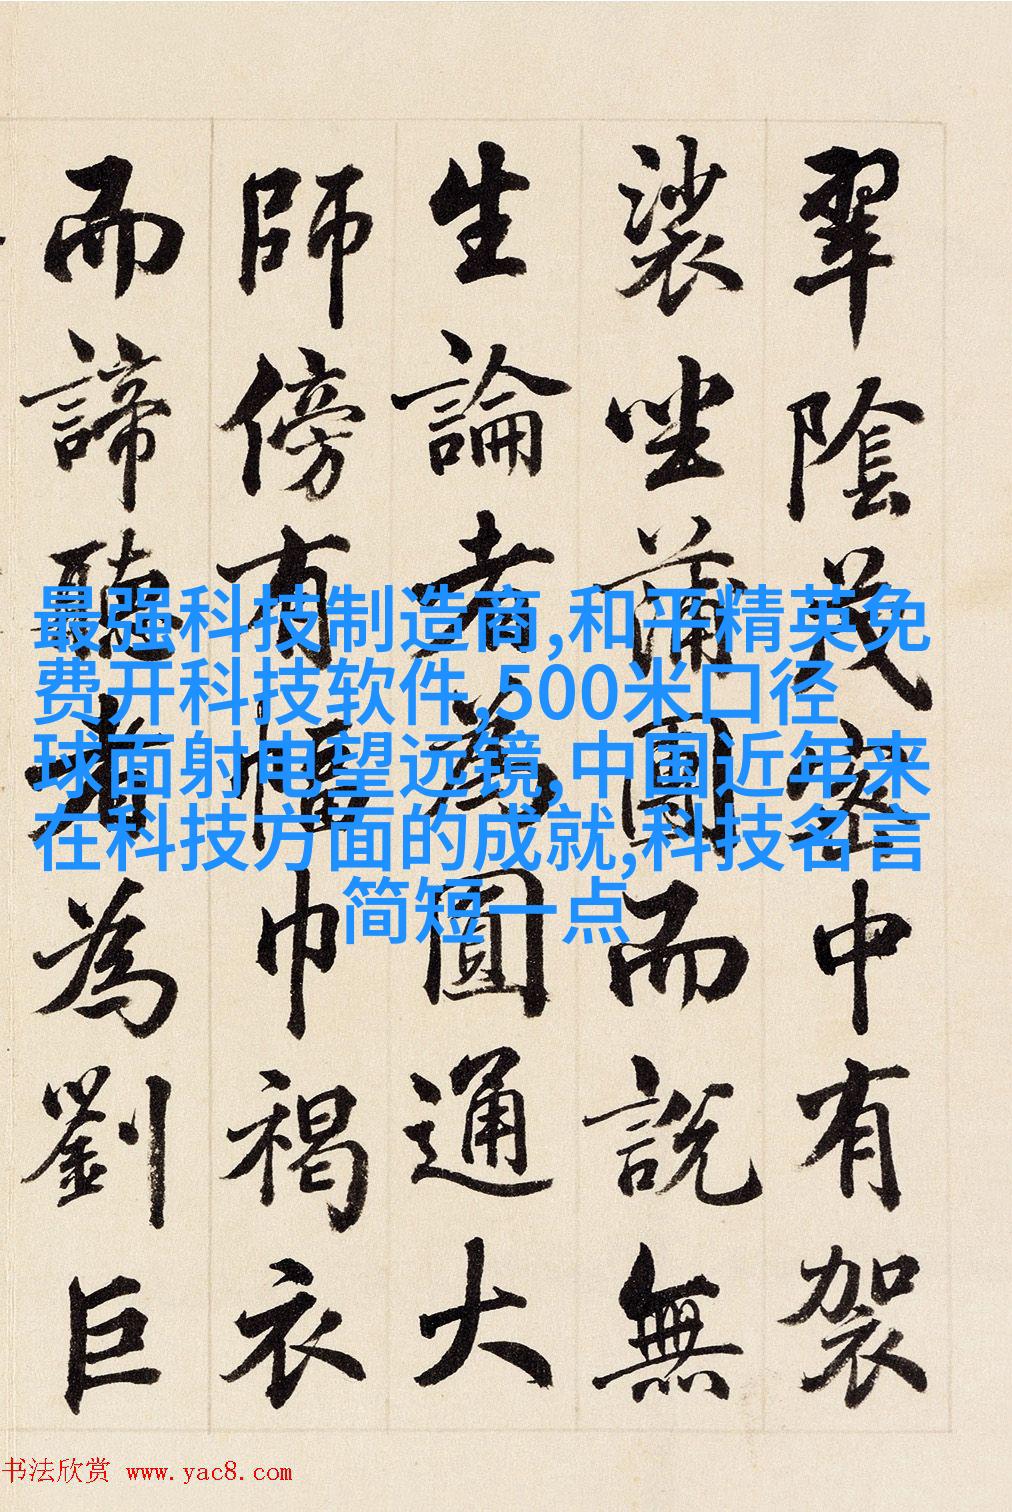 翠陰茂密中有袈
裟坐蒲團而說無
生論者為圓通大
師傍有幅巾褐衣
而諦聽者為劉巨
最强科技制造商,和平精英免
费开科技软件,500米口径
球面射电望远镜,中国近年来
在科技方面的成就,科技名言
简短一点
书法欣赏 www.yac8.com